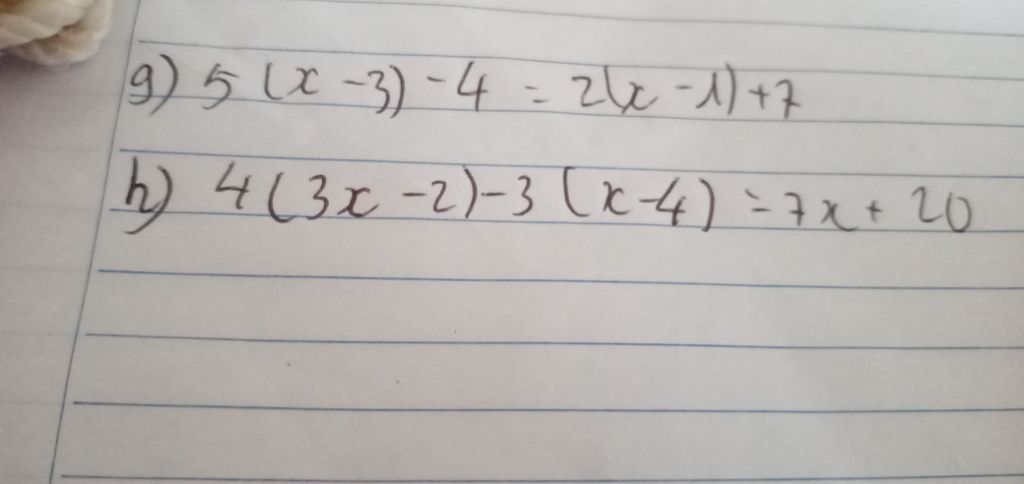 g) 5 (x - 3) - 4 = 2(x - 1) + 7
h) 4 (3x - 2) - 3 (x - 4) = 7x + 20